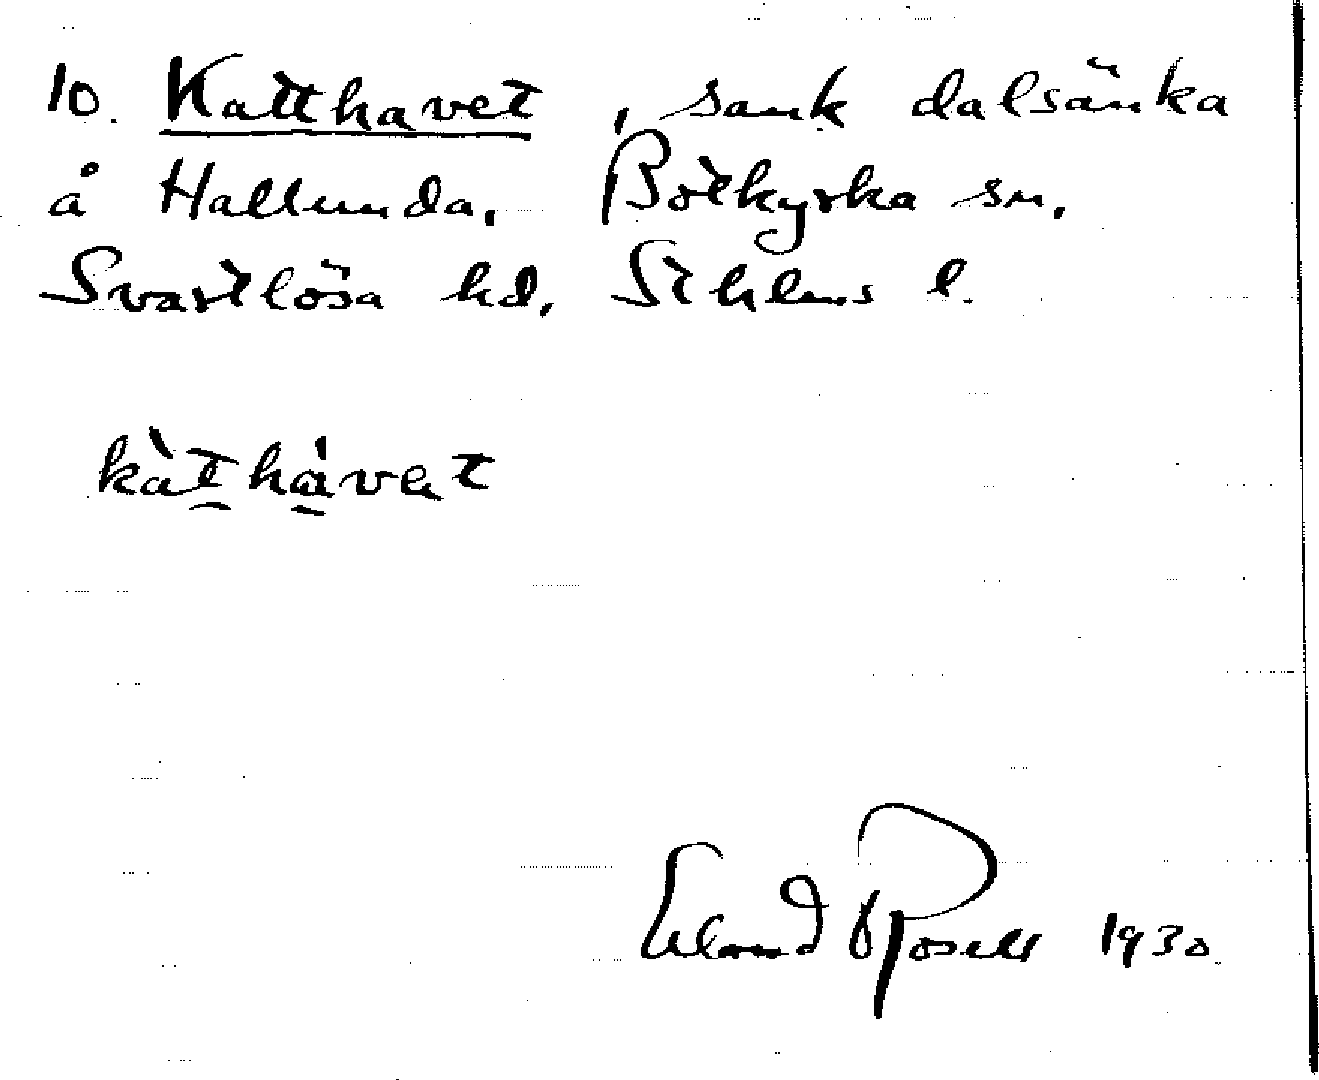 10. Katthavet, sank dalsänka
å Hallunda, Botkyrka sn,
Svartlösa hd, Sthlms l.
kàthávat
Erland Rosell 1930